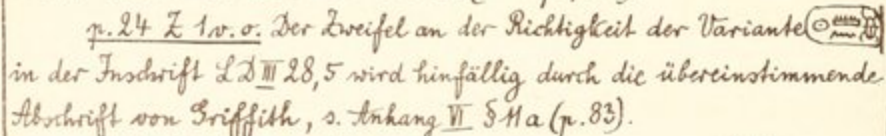 p. 24 Z 1 v. o. Der Zweifel an der Richtigkeit der Variante
in der Inschrift LD III 28,5 wird hinfällig durch die übereinstimmende
Abschrift von Griffith, s. Anhang VI § 11 a (p. 83).